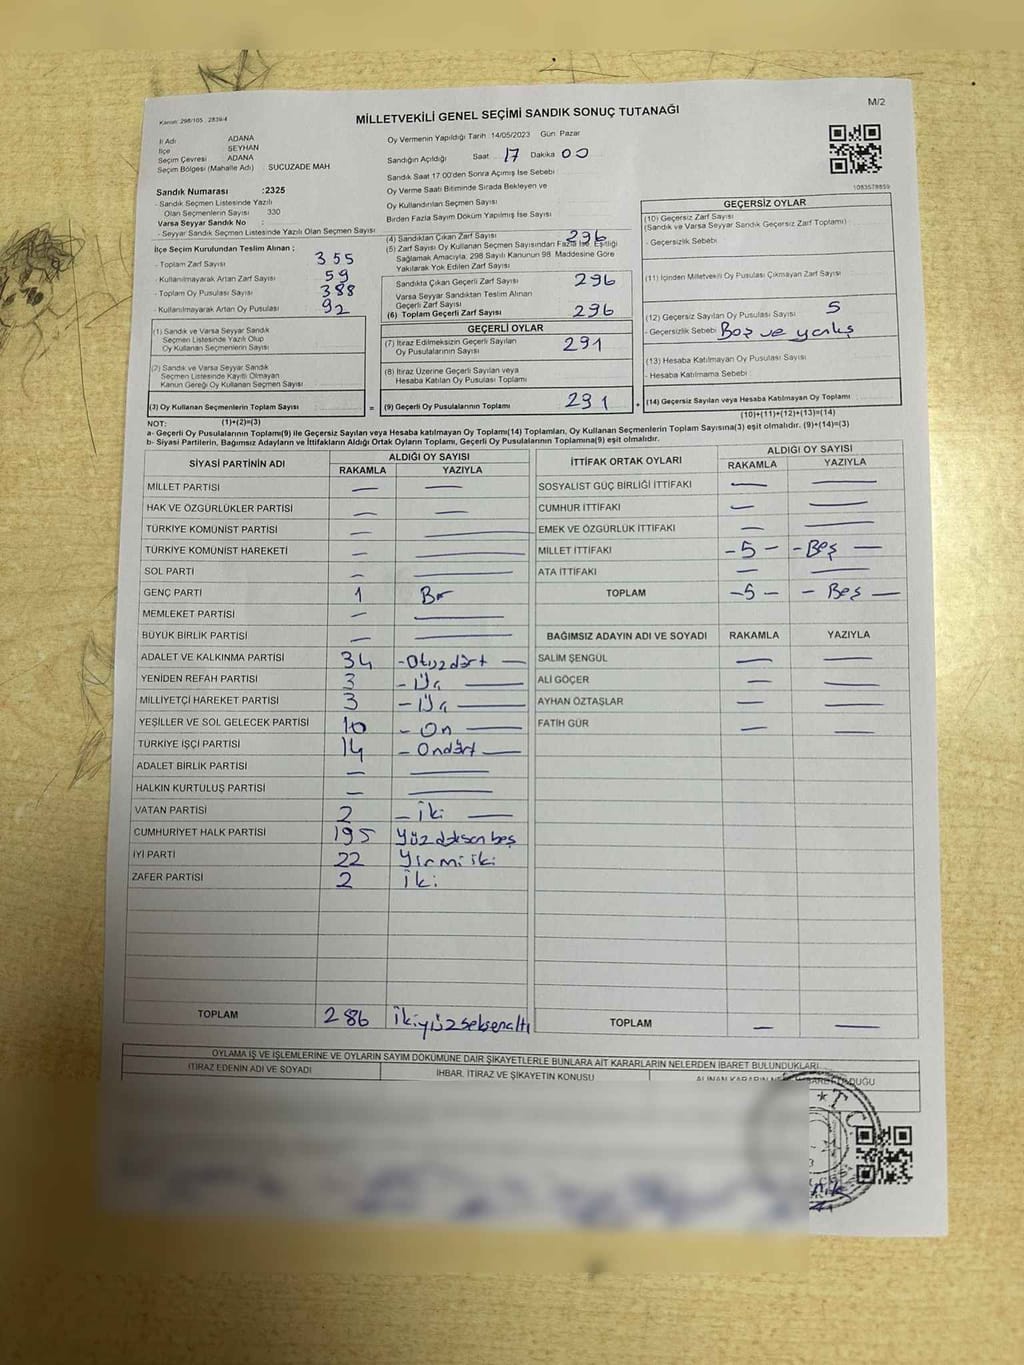 M/2
Kanun: 298/105 , 2839/4
MİLLETVEKİLİ GENEL SEÇİMİ SANDIK SONUÇ TUTANAĞI
İl Adı ADANA
İlçe SEYHAN
Seçim Çevresi ADANA
Seçim Bölgesi (Mahalle Adı) SUCUZADE MAH
Sandık Numarası :2325
- Sandık Seçmen Listesinde Yazılı
Olan Seçmenlerin Sayısı 330
Varsa Seyyar Sandık No :
- Seyyar Sandık Seçmen Listesinde Yazılı Olan Seçmen Sayısı
Oy Vermenin Yapıldığı Tarih :14/05/2023 Gün Pazar
Sandığın Açıldığı Saat : 17 Dakika : 00
Sandık Saat 17:00'den Sonra Açımış İse Sebebi :
Oy Verme Saati Bitiminde Sırada Bekleyen ve
Oy Kullandırılan Seçmen Sayısı
Birden Fazla Sayım Döküm Yapılmış İse Sayısı
1083578859
İlçe Seçim Kurulundan Teslim Alınan ;
- Toplam Zarf Sayısı 355
- Kullanılmayarak Artan Zarf Sayısı 59
- Toplam Oy Pusulası Sayısı 388
- Kullanılmayarak Artan Oy Pusulası 92
(1) Sandık ve Varsa Seyyar Sandık
Seçmen Listesinde Yazılı Olup
Oy Kullanan Seçmenlerin Sayısı
(2) Sandık ve Varsa Seyyar Sandık
Seçmen Listesinde Kayıtlı Olmayan
Kanun Gereği Oy Kullanan Seçmen Sayısı
(3) Oy Kullanan Seçmenlerin Toplam Sayısı =
(1)+(2)=(3)
(4) Sandıktan Çıkan Zarf Sayısı 296
(5) Zarf Sayısı Oy Kullanan Seçmen Sayısından Fazla İse, Eşitliği
Sağlamak Amacıyla, 298 Sayılı Kanunun 98. Maddesine Göre
Yakılarak Yok Edilen Zarf Sayısı
Sandıkta Çıkan Geçerli Zarf Sayısı 296
Varsa Seyyar Sandıktan Teslim Alınan
Geçerli Zarf Sayısı
(6) Toplam Geçerli Zarf Sayısı 296
GEÇERLİ OYLAR
(7) İtiraz Edilmeksizin Geçerli Sayılan
Oy Pusulalarının Sayısı 291
(8) İtiraz Üzerine Geçerli Sayılan veya
Hesaba Katılan Oy Pusulası Toplamı
(9) Geçerli Oy Pusulalarının Toplamı 291 +
GEÇERSİZ OYLAR
(10) Geçersiz Zarf Sayısı
(Sandık ve Varsa Seyyar Sandık Geçersiz Zarf Toplamı) :
- Geçersizlik Sebebi :
(11) İçinden Milletvekili Oy Pusulası Çıkmayan Zarf Sayısı
(12) Geçersiz Sayılan Oy Pusulası Sayısı 5
- Geçersizlik Sebebi : Boş ve yanlış
(13) Hesaba Katılmayan Oy Pusulası Sayısı
- Hesaba Katılmama Sebebi :
(14) Geçersiz Sayılan veya Hesaba Katılmayan Oy Toplamı
(10)+(11)+(12)+(13)=(14)
NOT:
a- Geçerli Oy Pusulalarının Toplamı(9) ile Geçersiz Sayılan veya Hesaba katılmayan Oy Toplamı(14) Toplamları, Oy Kullanan Seçmenlerin Toplam Sayısına(3) eşit olmalıdır. (9)+(14)=(3)
b- Siyasi Partilerin, Bağımsız Adayların ve İttifakların Aldığı Ortak Oyların Toplamı, Geçerli Oy Pusulalarının Toplamına(9) eşit olmalıdır.
SİYASİ PARTİNİN ADI ALDIĞI OY SAYISI
RAKAMLA YAZIYLA
MİLLET PARTİSİ — —
HAK VE ÖZGÜRLÜKLER PARTİSİ — —
TÜRKİYE KOMÜNİST PARTİSİ — —
TÜRKİYE KOMÜNİST HAREKETİ — —
SOL PARTİ — —
GENÇ PARTİ 1 Bir
MEMLEKET PARTİSİ — —
BÜYÜK BİRLİK PARTİSİ — —
ADALET VE KALKINMA PARTİSİ 34 -Otuzdört —
YENİDEN REFAH PARTİSİ 3 - Üç —
MİLLİYETÇİ HAREKET PARTİSİ 3 - Üç —
YEŞİLLER VE SOL GELECEK PARTİSİ 10 - On —
TÜRKİYE İŞÇİ PARTİSİ 14 - Ondört —
ADALET BİRLİK PARTİSİ — —
HALKIN KURTULUŞ PARTİSİ — —
VATAN PARTİSİ 2 - İki —
CUMHURİYET HALK PARTİSİ 195 Yüzdoksanbeş
İYİ PARTİ 22 Yirmiiki
ZAFER PARTİSİ 2 İki
TOPLAM 286 İkiyüzseksenaltı
İTTİFAK ORTAK OYLARI ALDIĞI OY SAYISI
RAKAMLA YAZIYLA
SOSYALİST GÜÇ BİRLİĞİ İTTİFAKI — —
CUMHUR İTTİFAKI — —
EMEK VE ÖZGÜRLÜK İTTİFAKI — —
MİLLET İTTİFAKI -5- -Beş —
ATA İTTİFAKI — —
TOPLAM -5- - Beş —
BAĞIMSIZ ADAYIN ADI VE SOYADI RAKAMLA YAZIYLA
SALİM ŞENGÜL — —
ALİ GÖÇER — —
AYHAN ÖZTAŞLAR — —
FATİH GÜR — —
TOPLAM — —
OYLAMA İŞ VE İŞLEMLERİNE VE OYLARIN SAYIM DÖKÜMÜNE DAİR ŞİKAYETLERLE BUNLARA AİT KARARLARIN NELERDEN İBARET BULUNDUKLARI
İTİRAZ EDENİN ADI VE SOYADI İHBAR, İTİRAZ VE ŞİKAYETİN KONUSU
T.C.